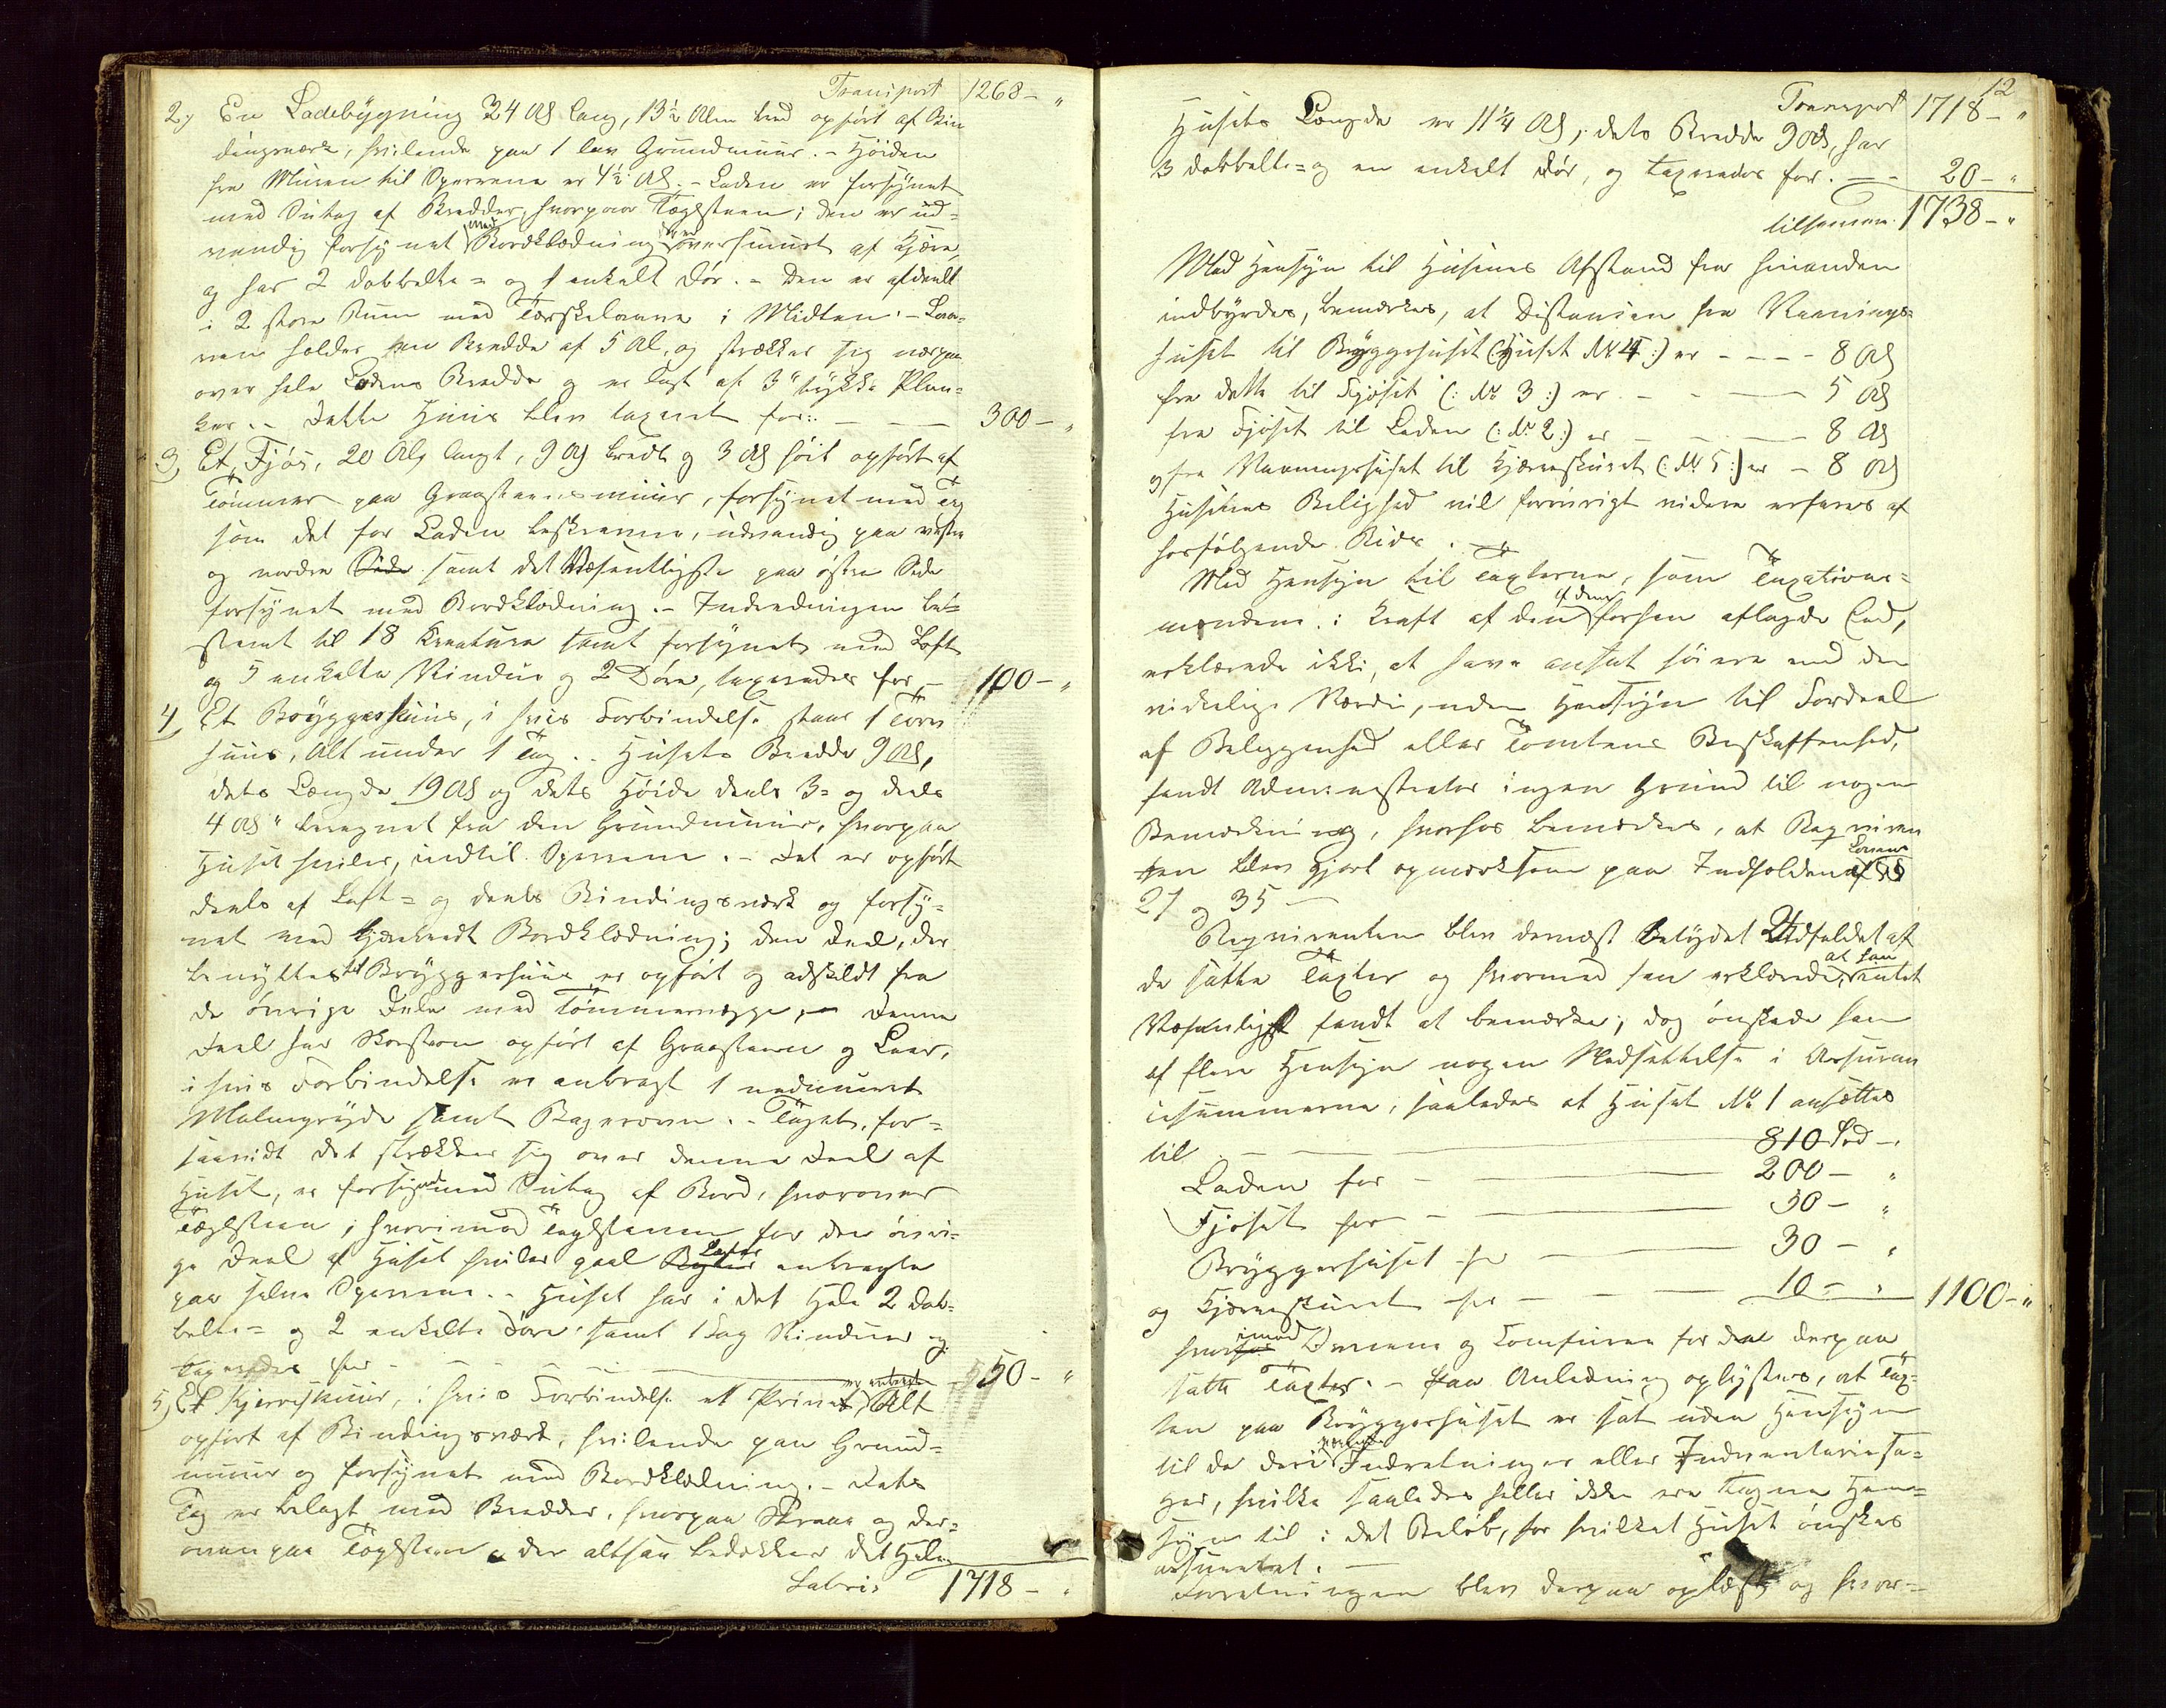 Transport 1268 - "
2, En Ladebÿgning 24 Al lang, 13½ Alen bred opfört af Bin
dingsværk, hvilende paa 1 lav Grundmuur. - Höiden
fra Muren til Sperrene er 4½ Al. - Laden er forsÿnet
med Sutag af Bredder, hvorpaa Tæglsteen; den er ud-
vendig forsÿnet med Bordklædning oversmurt af Tjære,
og har 2 dobbelte- og 1 enkelt Dör. - Den er afdeelt
i 2 store Rum med Tærskelaave i Midten. - Laa-
ven holder en Bredde af 5 Al, og strækker sig tværs
over hele Ladens Bredde og er lagt af 3" tÿkke Plan-
ker. - Dette Huus blev taxeret for: - 300 - "
3, Et Fjös, 20 Al langt, 9 Al bredt og 3 Al höit opfört af
Tömmer paa Graasteensmuur, forsÿnet med Tag
som det for Laden beskrevne, udvendig paa vestre
og nordre Side samt det Væsentligste paa östre Side
forsÿnet med Bordklædning. - Indredningen be-
stemt til 18 Kreature samt forsÿnet med Loft
og 5 enkelte Vinduer og 2 Döre, taxeredes for 100 - "
4, Et Brÿggerhuus, i hvis Forbindelse staar 1 Törv
huus, Alt under 1 Tag. - Husets Bredde 9 Al,
dets Længde 19 Al og dets Höide deels 3- og deels
4 Al beregnet fra den Grundmuur, hvorpaa
Huset hviler, indtil Sperrene. - Det er opfört
deels af Laft- og deels Bindingsværk og forsÿ-
net med tjærebredt Bordklædning; den Deel, der
benÿttes til Brÿggerhuus er opfört og adskildt fra
de övrige Dele med Tömmervægge, - Denne
Deel har Skorsteen opfört af Graasteen og Leer,
i hvis Forbindelse er anbragt 1 nedmuret
Malmgrÿde samt Bagerovn. - Taget, for-
saavidt det strækker sig over denne Deel af
Huset, er forsÿnet med Sutag af Bord, hvorover
Tæglsteen; hvorimod Tæglstenene for den övri-
ge Deel af Huset hviler paa Lægter anbragte
paa selve Sperrene. - Huset har i det Hele 2 dob-
belte- og 2 enkelte Döre samt 1 Fag Vinduer og
taxeredes for - 50 - "
5, Et Kjerreskuur, i hvis Forbindelse et Privet er anbragt, Alt
opfört af Bindingsværk, hvilende paa Grund-
muur og forsÿnet med Bordklædning. - Dets
Tag er belagt med Bredder, hvorpaa Straae og der-
ovenpaa Tæglsteen, der altsaa bedækker det Hele.
Lateri: 1718 - "
12
Transport 1718 - "
Husets Længde er 11¼ Al, dets Bredde 9 Al, har
3 dobbelte- og en enkelt Dör, og taxeredes for. - 20 - "
tilsammen 1738 - "
Med Hensÿn til Husenes Afstand fra hinanden
indbÿrdes, bemærkes, at Distancen fra Vaanings-
huset til Brÿggehuset (: Huset № 4 :) er - - - 8 Al
fra dette til Fjöset (: № 3 :) er - - - 5 Al
fra Fjöset til Laden (: № 2 :) er - - - 8 Al
og fra Vaaningshuset til Kjærreskuret (: № 5 :) er - 8 Al
Husenes Belighed vil forövrigt videre erfares af
hosfölgende Rids. -
Med Hensÿn til Taxterne, som Taxations-
mændene i Kraft af den af dem forhen aflagde Eed,
erklærede ikke at have ansat höiere end den
virkelige Værdie, uden Hensÿn til Fordeel
af Beliggenhed eller Tomtens Beskaffenhed,
fandt Administrator ingen Grund til nogen
Bemærkning, hvorhos bemærkes, at Reqviren
ten blev gjort opmærksom paa Indholden af Lovens §§
27 og 35 -
Reqvirenten blev dernæst betÿdet Udfaldet af
de satte Taxter og hvormed han erklærede, at han intet
Væsenligst fandt at bemærke, dog önskede han
af flere Hensÿn nogen Nedsættelse i Assuran
cesummerne, saaledes at Huset № 1 ansættes
til - 810 Spd -
Laden for - 200 - "
Fjöset for - 50 - "
Brÿggerhuset for - 30 - "
og Kjerreskuret for - 10 - " 1100 - "
hvorimod Ovnene og Komfuren for den derpaa
satte Taxter. - Paa Anledning oplÿstes, at Tax-
ten paa Brÿggerhuset er sat uden Hensÿn
til de deri værende Indretninger eller Inventariesa-
ger, hvilke saaledes heller ikke ere tagne Hen-
sÿn til i det Belöb, for hvilket Huset önskes
assureret. -
Forretningen blev derpaa oplæst, og hvor-